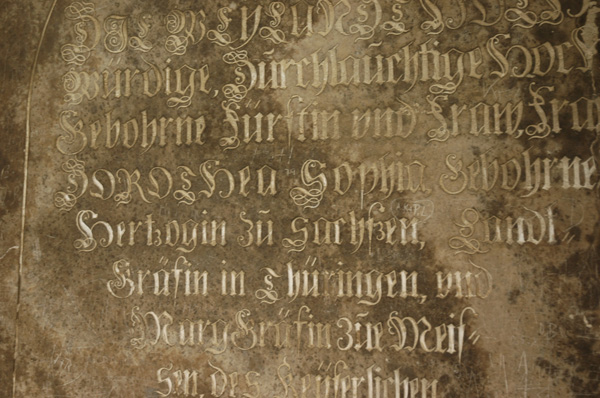 DIE WEYLUNDT HOCH
würdige, Durchlauchtige Hoch
Gebohrne Fürstin vnd Fraw, Fraw
DOROTHEA Sophia, Gebohrne
Hertzogin zu Sachßen, Landt⸗
Gräfin in Thüringen, vnd
MargGräfin zue Meis⸗
sen, des Keÿserlichen